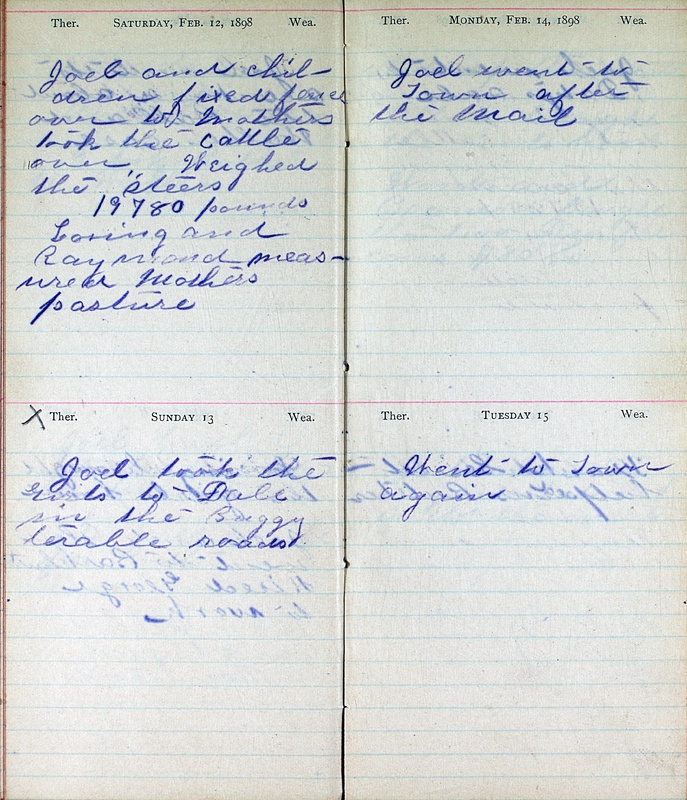 Ther. SATURDAY, FEB. 12, 1898 Wea.
Joel and chil-
dren fixed fence
over to Mothers
took the cattle
over, Weighed
the steers
19780 pounds
Loring and
Raymond meas-
ured Mothers
pasture
X Ther. SUNDAY 13 Wea.
Joel took the
girls to Dale
in the Buggy
terable roads
Ther. MONDAY, FEB. 14, 1898 Wea.
Joel went to
Town after
the Mail
Ther. TUESDAY 15 Wea.
Went to Town
again